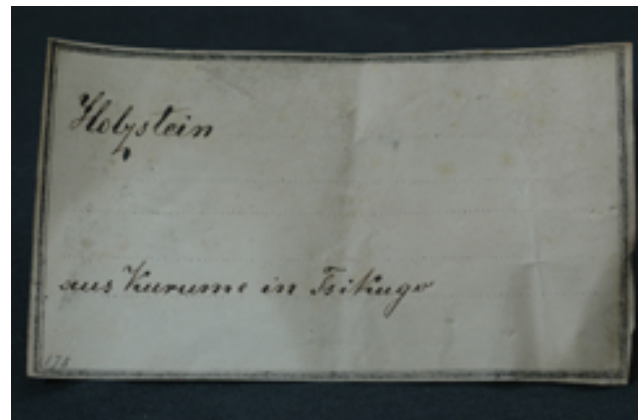 Holzstein
aus Kurume in Tsikugo